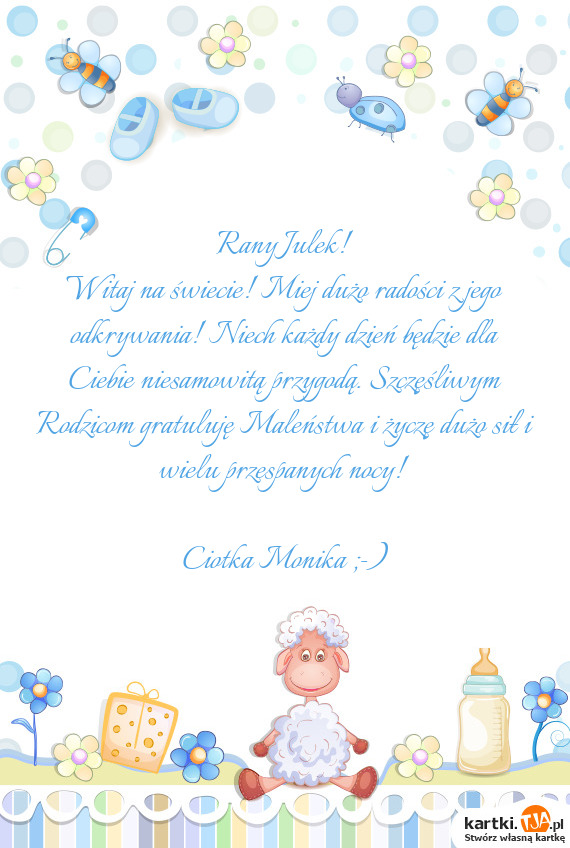 Rany Julek!
Witaj na świecie! Miej dużo radości z jego
odkrywania! Niech każdy dzień będzie dla
Ciebie niesamowitą przygodą. Szczęśliwym
Rodzicom gratuluję Maleństwa i życzę dużo sił i
wielu przespanych nocy!
Ciotka Monika ;-)
kartki.TJA.pl
Stwórz własną kartkę